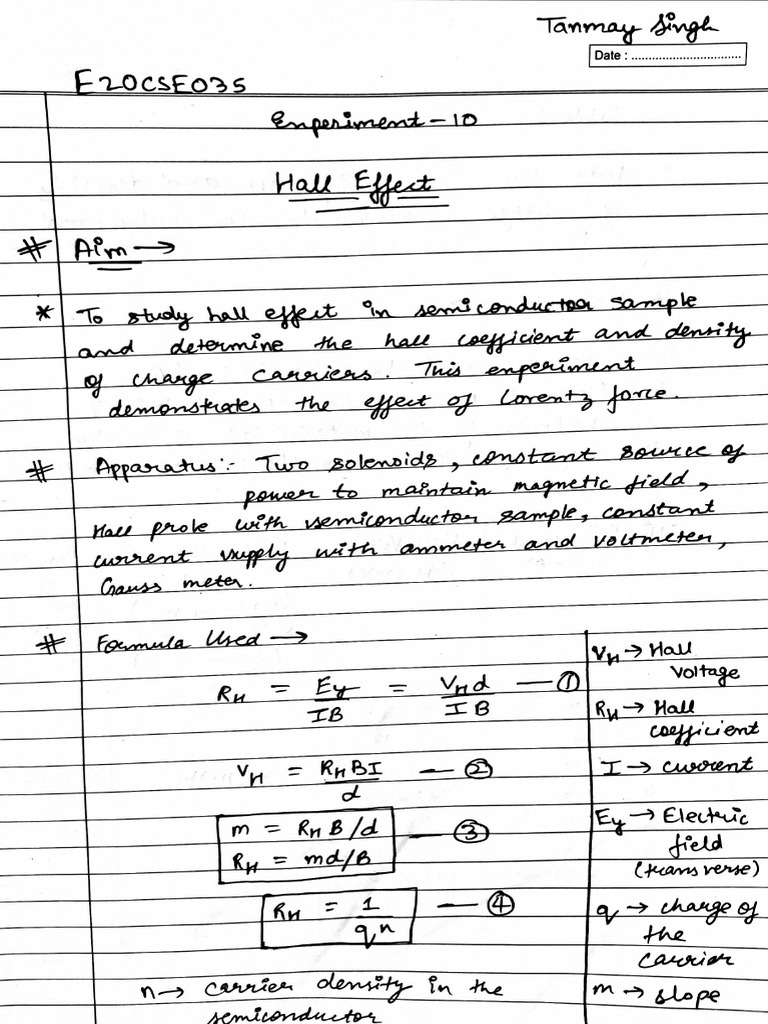 Tanmay Singh
Date : ................................
E20CSE035
Enperiment - 10
Hall Effect
# Aim →
* To study hall effect in semiconductor sample
and determine the hall coefficient and density
of charge carriers. This enperiment
demonstrates the effect of Lorentz force.
# Apparatus:- Two solenoids, constant source of
power to maintain magnetic field,
Hall probe with semiconductor sample, constant
current supply with ammeter and voltmeter,
Gauss meter.
# Formula Used →
R_H = Ey/IB = V_H d/IB — ①
V_H = R_H BI/d — ②
m = R_H B/d
R_H = md/B — ③
R_H = 1/qn — ④
n → carrier density in the
semiconductor
V_H → Hall
Voltage
R_H → Hall
coefficient
I → current
Ey → Electric
field
(transverse)
q → charge of
the
carrier
m → slope